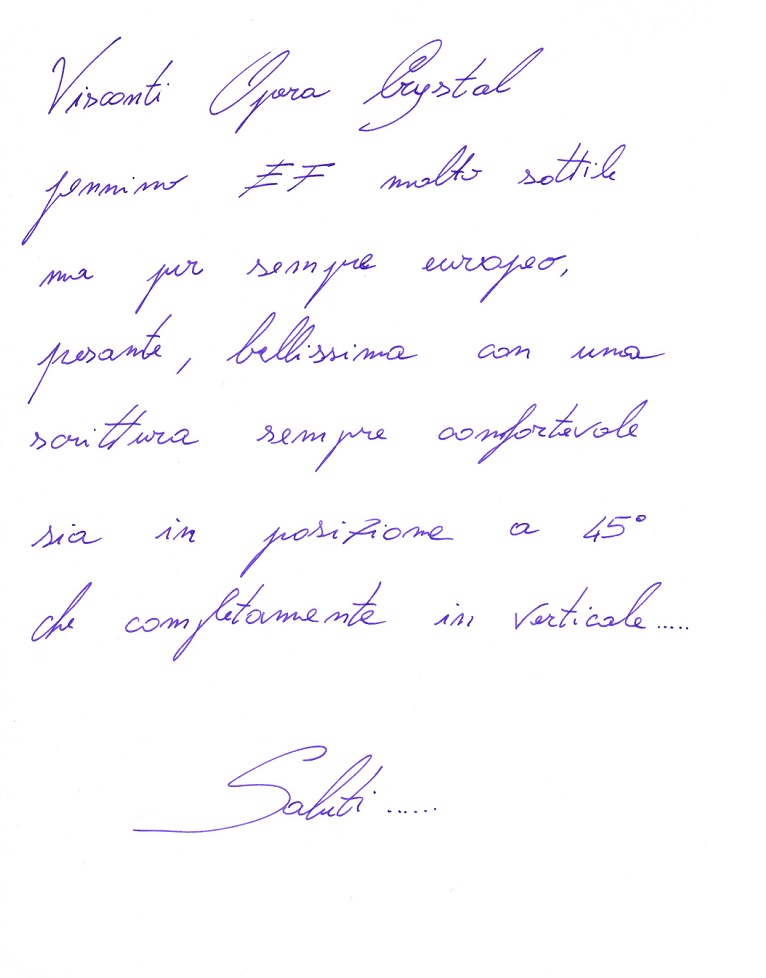 Visconti Opera Crystal
pennino EF molto sottile
ma pur sempre europeo,
pesante, bellissima con una
scrittura sempre confortevole
sia in posizione a 45°
che completamente in verticale.....
Saluti......